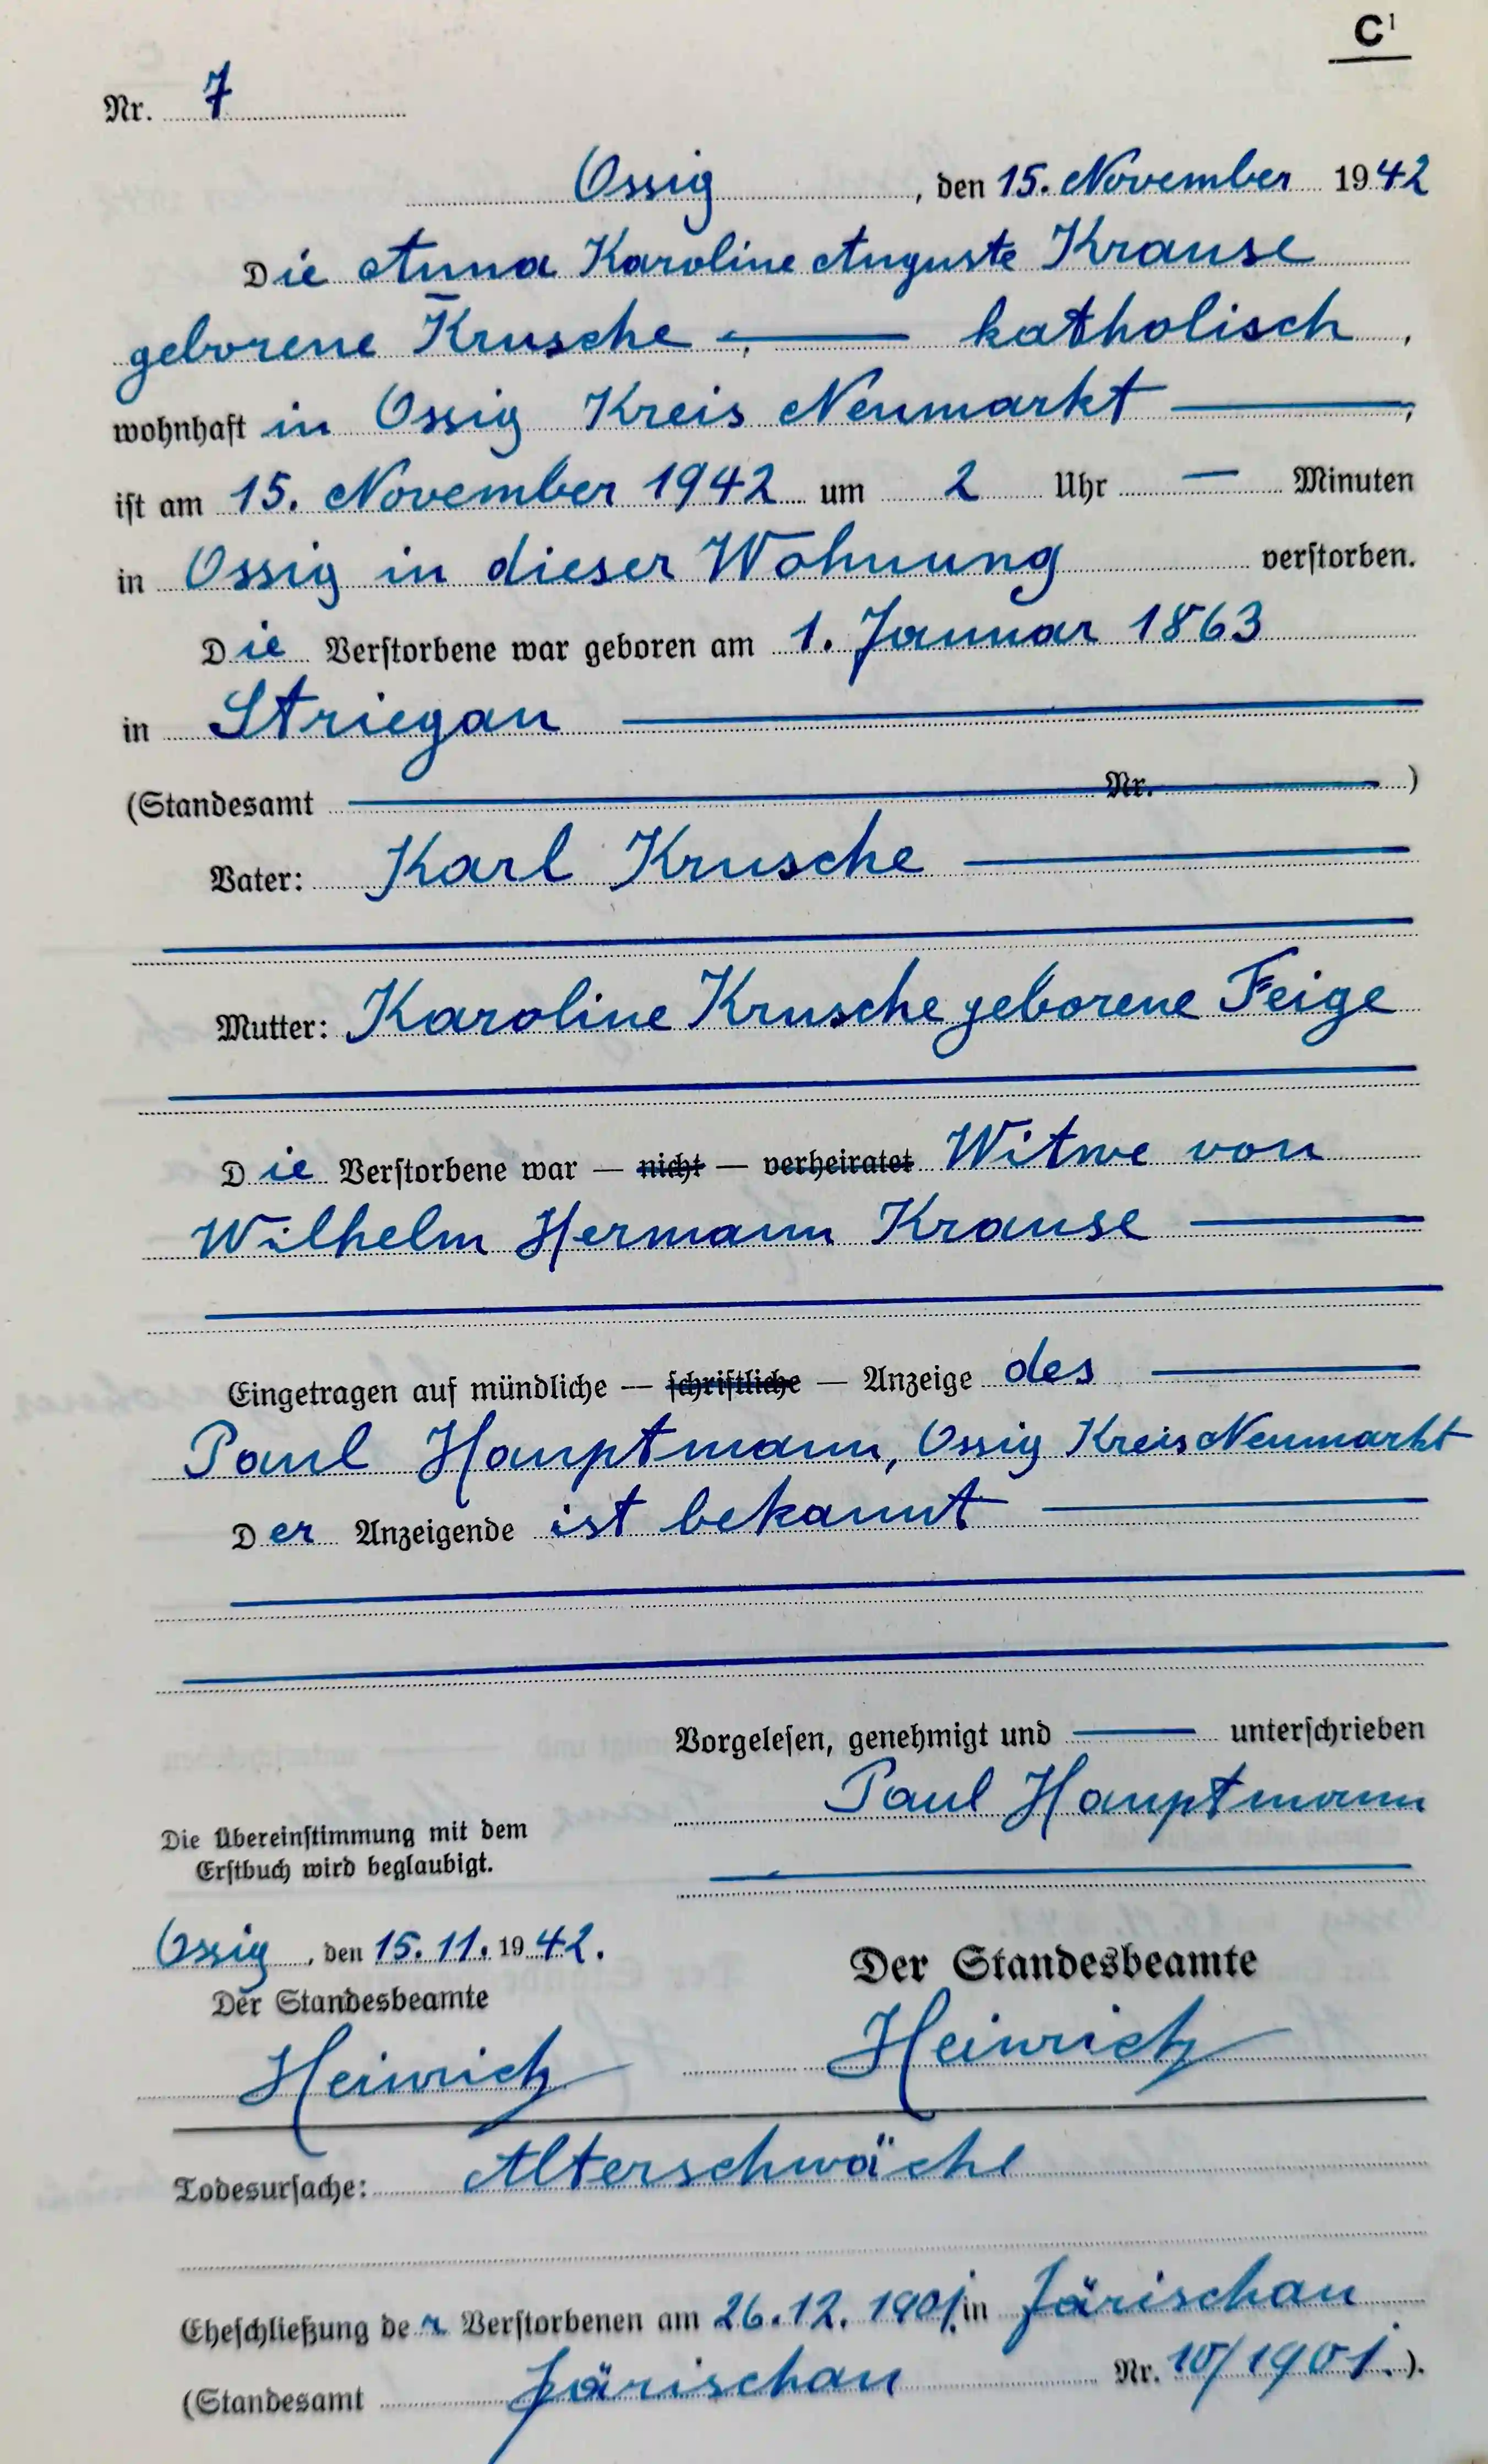 C¹
Nr. 7
Ossig, den 15. November 1942
Die Anna Karoline Auguste Krause
geborene Krusche — katholisch,
wohnhaft in Ossig Kreis Neumarkt —,
ist am 15. November 1942 um 2 Uhr — Minuten
in Ossig in dieser Wohnung verstorben.
Die Verstorbene war geboren am 1. Januar 1863
in Striegau —
(Standesamt — Nr. —)
Vater: Karl Krusche —
Mutter: Karoline Krusche geborene Feige
Die Verstorbene war — nicht — verheiratet Witwe von
Wilhelm Hermann Krause —
Eingetragen auf mündliche — schriftliche — Anzeige des —
Paul Hauptmann, Ossig Kreis Neumarkt
Der Anzeigende ist bekannt —
Vorgelesen, genehmigt und — unterschrieben
Paul Hauptmann
Die Übereinstimmung mit dem
Erstbuch wird beglaubigt.
Ossig, den 15.11.1942.
Der Standesbeamte
Heinrich
Der Standesbeamte
Heinrich
Todesursache: Alterschwäche
Eheschließung der Verstorbenen am 26.12.1901 in Järischau
(Standesamt Järischau Nr. 10/1901.).